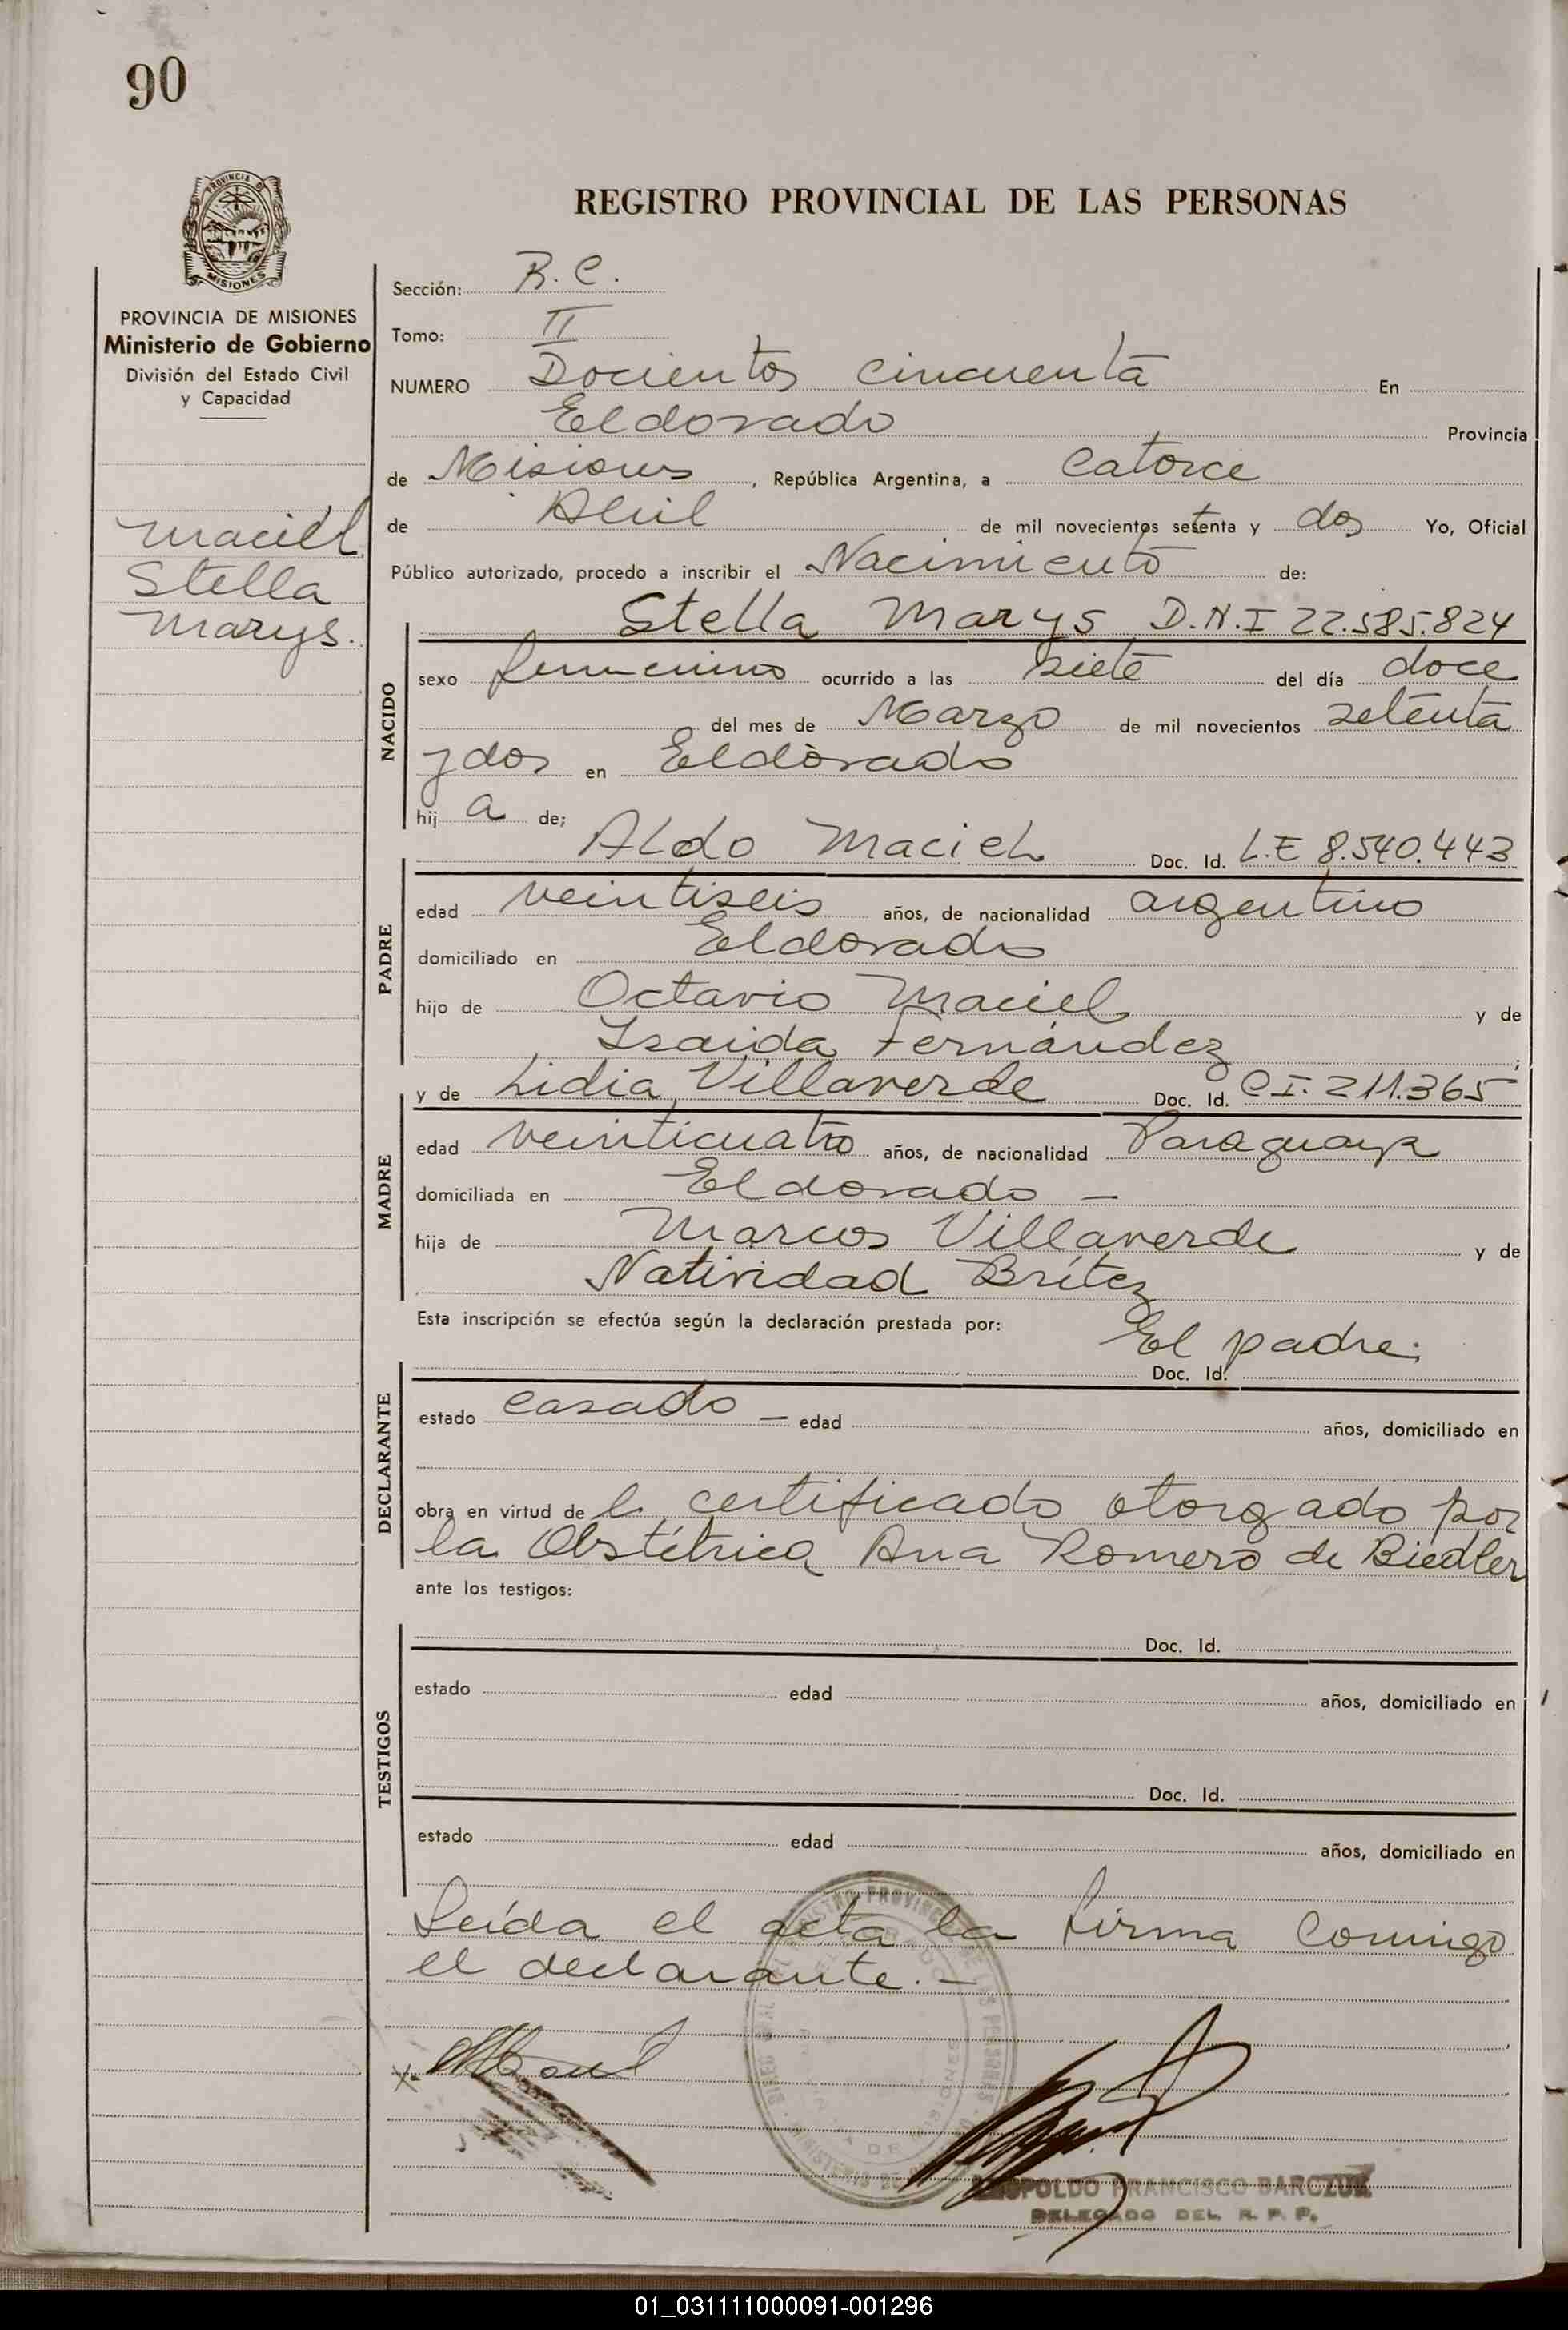 90
PROVINCIA DE
MISIONES
PROVINCIA DE MISIONES
Ministerio de Gobierno
División del Estado Civil
y Capacidad
Maciel
Stella
Marys.
REGISTRO PROVINCIAL DE LAS PERSONAS
Sección: R.C.
Tomo: II
NUMERO Docientos cincuenta En
Eldorado Provincia
de Misiones, República Argentina, a catorce
de Abril de mil novecientos setenta y dos Yo, Oficial
Público autorizado, procedo a inscribir el Nacimiento de:
Stella Marys D.N.I 22.585.824
NACIDO
sexo femenino ocurrido a las siete del día doce
del mes de Marzo de mil novecientos setenta
y dos en Eldorado
hij a de;
Aldo Maciel Doc. Id. L.E 8.540.443
PADRE
edad veintiseis años, de nacionalidad argentino
domiciliado en Eldorado
hijo de Octavio Maciel y de
Isaida Fernández;
y de Lidia Villaverde Doc. Id. C.I. 211.365
MADRE
edad veinticuatro años, de nacionalidad Paraguaya
domiciliada en Eldorado —
hija de Marcos Villaverde y de
Natividad Brítez
Esta inscripción se efectúa según la declaración prestada por: El padre.
Doc. Id.
DECLARANTE
estado casado — edad años, domiciliado en
obra en virtud de l certificado otorgado por
la Obstétrica Ana Romero de Biedler
ante los testigos:
TESTIGOS
Doc. Id.
estado edad años, domiciliado en
Doc. Id.
estado edad años, domiciliado en
Leída el acta la firma comigo
el declarante. —
x.
LEOPOLDO FRANCISCO BARCZUK
DELEGADO DEL R. P. P.
01_031111000091-001296